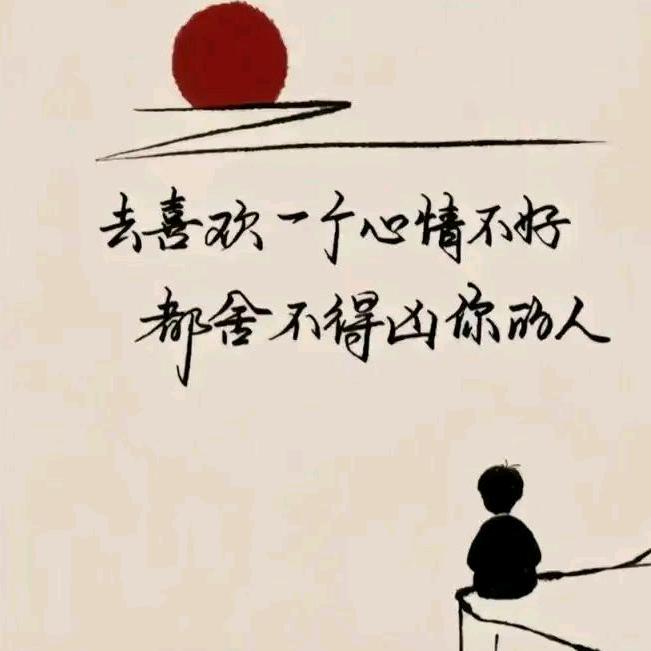 去喜欢一个心情不好
都舍不得凶你的人